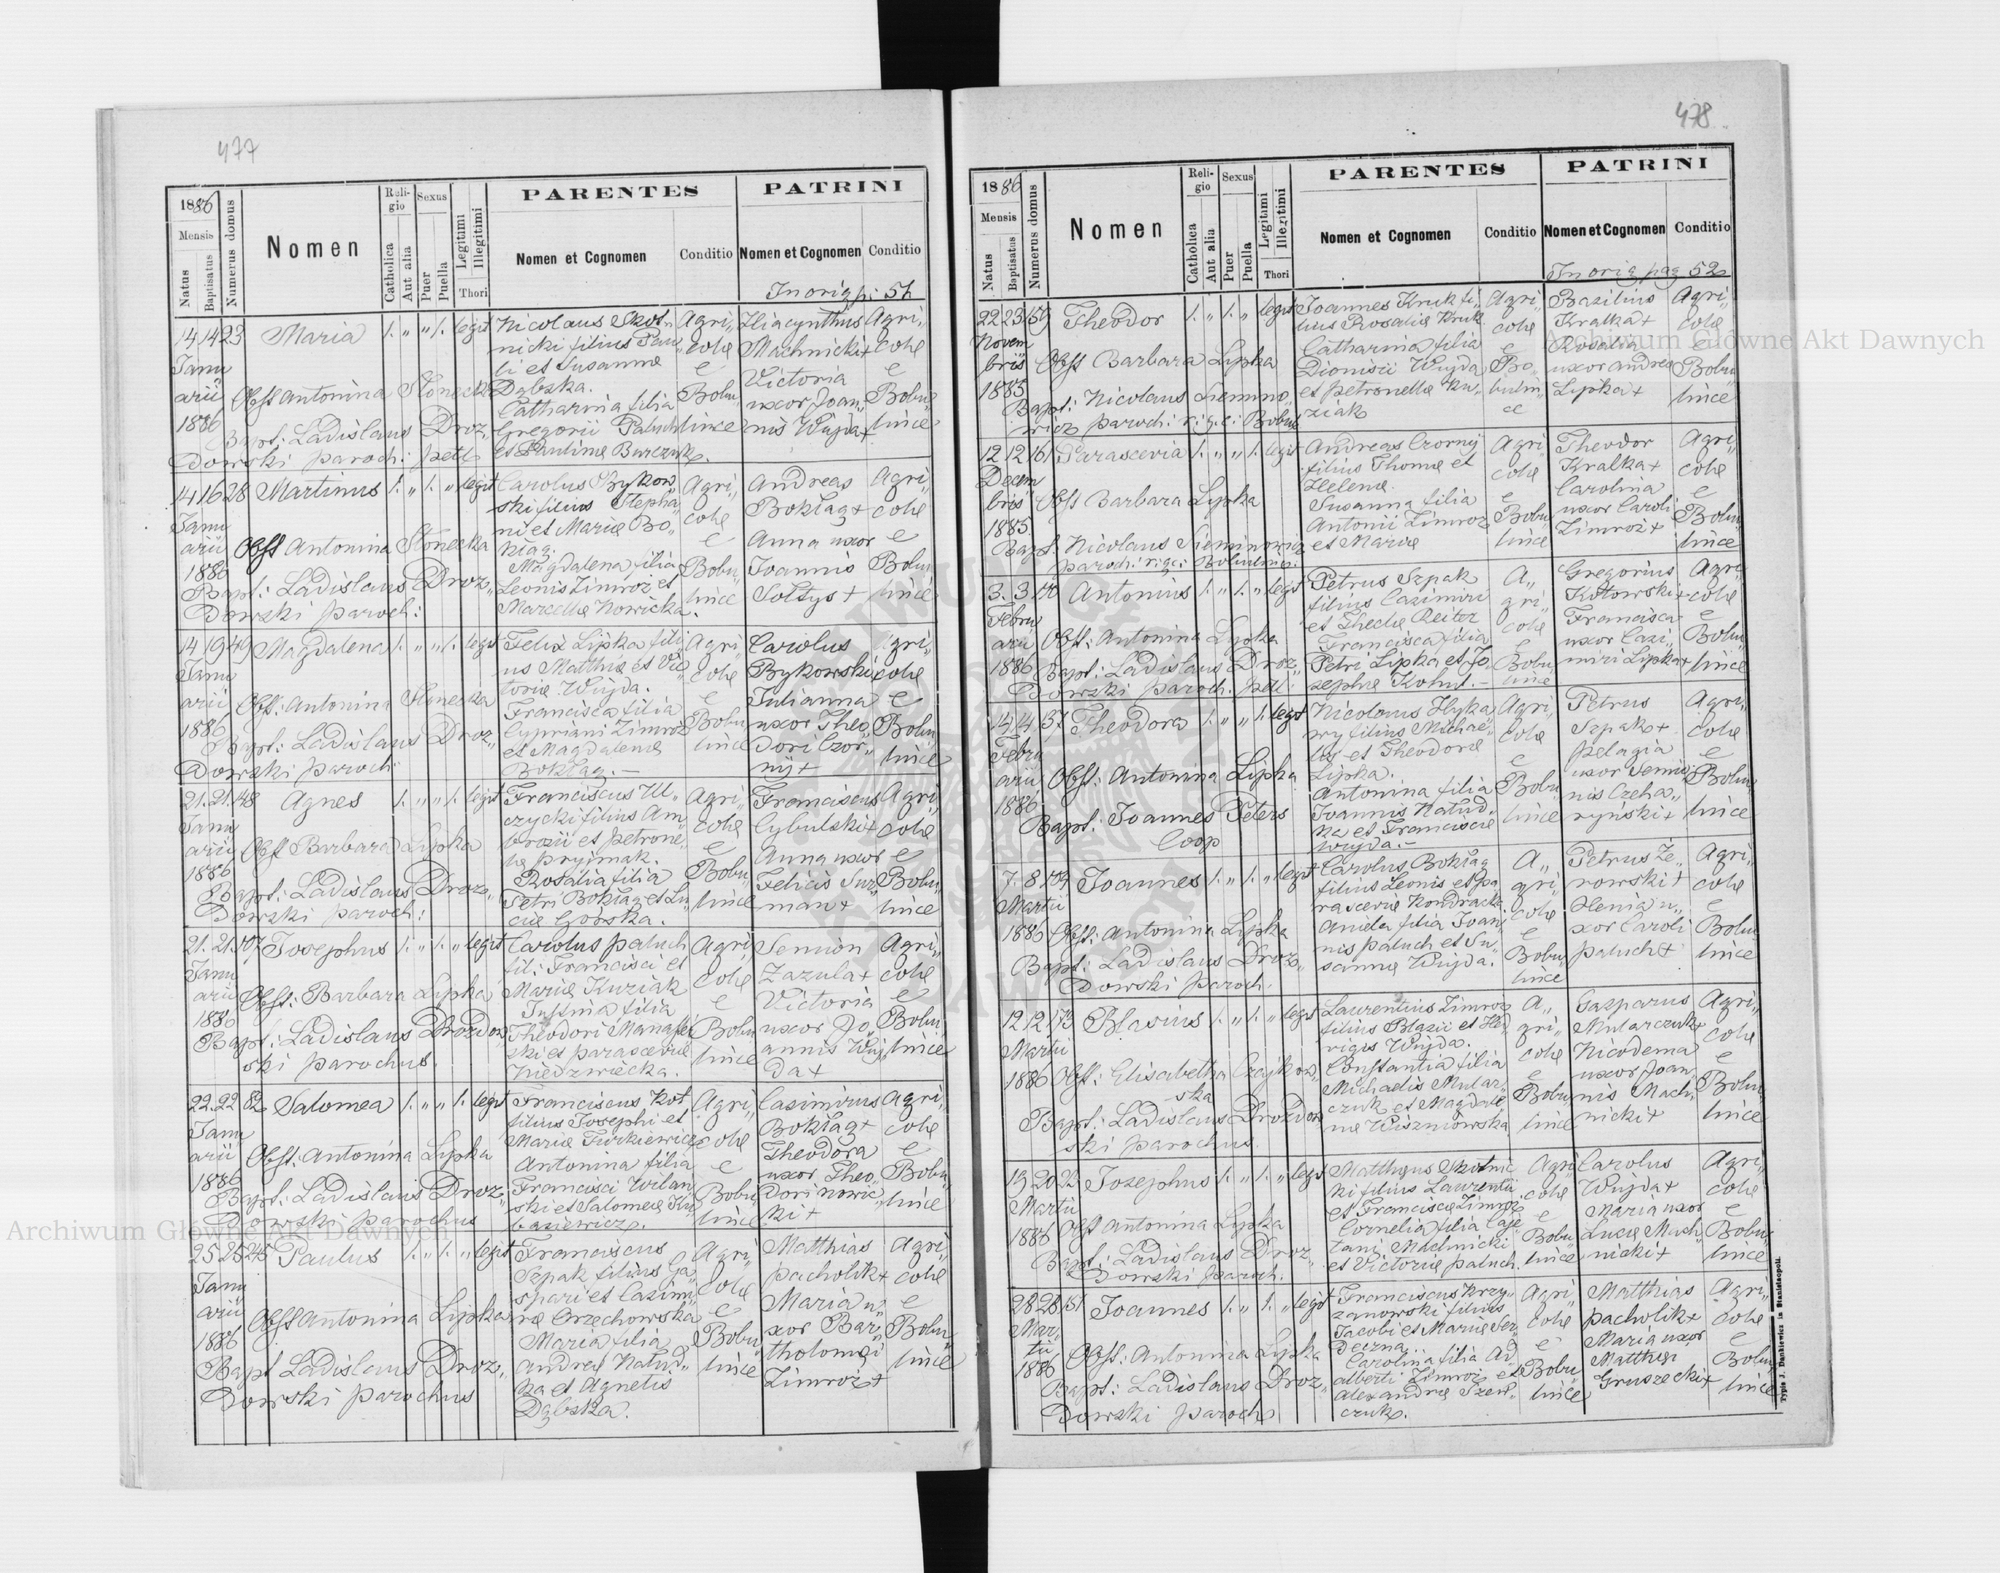 477
1886
Mensis
Natus
Baptisatus
Numerus domus
Nomen
Religio
Catholica
Aut alia
Sexus
Puer
Puella
Legitimi
Illegitimi
Thori
PARENTES
Nomen et Cognomen
Conditio
PATRINI
Nomen et Cognomen
Conditio
In orig p: 51
14 14 23 Maria 1. " " 1. legit
Januarii
1886
Obst Antonina Słonecka
Bapt: Ladislaus Droz-
dowski paroch: petl
Nicolaus Skot-
nicki filius Pau-
li et Susanne
Dąbska.
Catharina filia
Gregorii Paluch
et Pauline Barczuk.
Agri-
colæ
e
Bobu-
lince
Hiacynthus
Machnicki +
Victoria
uxor Joan-
nis Wujda +
Agri-
colæ
e
Bobu-
lince
14 16 28 Martinus 1. " 1. " legit
Januarii
1886
Obst Antonina Słonecka
Bapt: Ladislaus Droz-
dowski paroch:
Carolus Bykow-
ski filius Stepha-
ni et Mariæ Bo-
kłag.
Magdalena filia
Leonis Zimroz et
Marcellæ Nowicka.
Agri-
colæ
e
Bobu-
lince
Andreas
Bokłag +
Anna uxor
Joannis
Sołtys +
Agri-
colæ
e
Bobu-
lince
14 19 49 Magdalena 1. " " 1. legit
Januarii
1886
Obst: Antonina Słonecka
Bapt: Ladislaus Droz-
dowski paroch:
Felix Lipka fili-
us Matthiæ et Vic-
toriæ Wujda.
Francisca filia
Cypriani Zimroz
et Magdalenæ
Bokłag. —
Agri-
colæ
e
Bobu-
lince
Carolus
Bykowski
Julianna
uxor Theo-
dori Czor-
nyj +
Agri-
colæ
e
Bobu-
lince
21. 21. 148 Agnes 1. " " 1. legit
Januarii
1886
Obst Barbara Lipka
Bapt: Ladislaus Droz-
dowski paroch:
Franciscus Il-
czycki filius Am-
brozii et Petronel-
læ Pryjmak.
Rosalia filia
Petri Bokłag et Lu-
ciæ Górska.
Agri-
colæ
e
Bobu-
lince
Franciscus
Cybulski +
Anna uxor
Felicis Sur-
man +
Agri-
colæ
e
Bobu-
lince
21. 21. 107 Josephus 1. " 1. " legit
Januarii
1886
Obst: Barbara Lipka
Bapt: Ladislaus Drozdow-
ski parochus.
Carolus Paluch
fil: Francisci et
Mariæ Kuziak
Justina filia
Theodori Manaster-
ski et Parasceviæ
Niedzwiecka.
Agri-
colæ
e
Bobu-
lince
Semion
Zazula +
Victoria
uxor Jo-
annis Wuj-
da +
Agri-
colæ
e
Bobu-
lince
22. 22 82 Salomea 1. " " 1. legit
Januarii
1886
Obst: Antonina Lipka
Bapt: Ladislaus Droz-
dowski parochus
Franciscus Kot
filius Josephi et
Mariæ Turkiewicz
Antonina filia
Francisci Wilan-
ski et Salomeæ Ku-
basiewicz.
Agri-
colæ
e
Bobu-
lince
Casimirus
Bokłag +
Theodora
uxor Theo-
dori Nowic-
ki +
Agri-
colæ
e
Bobu-
lince
25 25 245 Paulus 1. " 1. " legit
Januarii
1886
Obst Antonina Lipka
Bapt Ladislaus Droz-
dowski parochus
Franciscus
Szpak filius Ga-
spari et Casimi-
ræ Orzechowska
Maria filia
Andreæ Natud-
ka et Agnetis
Dąbska.
Agri-
colæ
e
Bobu-
lince
Matthias
Pacholik +
Maria u-
xor Bar-
tholomei
Zimroz +
Agri-
colæ
e
Bobu-
lince
478
1886
Mensis
Natus
Baptisatus
Numerus domus
Nomen
Religio
Catholica
Aut alia
Sexus
Puer
Puella
Legitimi
Illegitimi
Thori
PARENTES
Nomen et Cognomen
Conditio
PATRINI
Nomen et Cognomen
Conditio
In orig pag 52
22 23 159 Theodor 1. " 1. " legit
Novembris
1885
Obst Barbara Lipka
Bapt: Nicolaus Siemino-
wicz paroch: r: g: c: Bobul
Joannes Kruk fi-
lius Rosaliæ Kruk
Catharina filia
Dionisii Wujda
et Petronellæ Ku-
ziak
Agri-
colæ
e
Bo-
bulin-
ce
Basilius
Kralka +
Rosalia
uxor Andreæ
Lipka +
Agri-
colæ
e
Bobu-
lince
12 12 161 Parascevia 1. " " 1. legit
Decembris
1885
Obst Barbara Lipka
Bapt. Nicolaus Sieminowicz
paroch: r: g: c: Bobulinc:
Andreas Czornyj
filius Thomæ et
Helenæ
Susanna filia
Antonii Zimroz
et Mariæ
Agri-
colæ
e
Bobu-
lince
Theodor
Kralka +
Carolina
uxor Caroli
Zimroz +
Agri-
colæ
e
Bobu-
lince
3. 3. 170 Antonius 1. " 1. " legit
Februarii
1886
Obst: Antonina Lipka
Bapt: Ladislaus Droz-
dowski paroch. petl:
Petrus Szpak
filius Casimiri
et Theclæ Reiter
Francisca filia
Petri Lipka et Jo-
sephæ Kohut. —
A-
gri-
colæ
e
Bobu-
lince
Gregorius
Kotowski +
Francisca
uxor Casi-
miri Lipka +
Agri-
colæ
e
Bobu-
lince
4. 4. 57 Theodora 1. " " 1. legit
Februarii
1886
Obst: Antonina Lipka
Bapt: Joannes Peters
Coop
Nicolaus Hyka-
wy filius Michae-
lis et Theodoræ
Lipka.
Antonina filia
Joannis Natud-
ka et Franciscæ
Wujda. —
Agri-
colæ
e
Bobu-
lince
Petrus
Szpak +
Pelagia
uxor Semio-
nis Czeha-
ryński +
Agri-
colæ
e
Bobu-
lince
7. 8 174 Joannes 1. " 1. " legit
Martii
1886
Obst: Antonina Lipka
Bapt: Ladislaus Droz-
dowski paroch.
Carolus Bokłag
filius Leonis et Pa-
rasceviæ Kondracka
Aniela filia Joan-
nis Paluch et Su-
sannæ Wujda.
A-
gri-
colæ
e
Bobu-
lince
Petrus Ze-
rowski +
Xenia u-
xor Caroli
Paluch +
Agri-
colæ
e
Bobu-
lince
12. 12 173 Blasius 1. " 1. " legit
Martii
1886
Obst: Elisabetha Czajkow-
ska
Bapt: Ladislaus Drozdow-
ski parochus
Laurentius Zimroz
filius Blazii et Hed-
vigis Wujda.
Constantia filia
Michaelis Mular-
czuk et Magdale-
næ Wiszniowska
A-
gri-
colæ
e
Bobu-
lince
Gasparus
Mularczuk +
Nicodema
uxor Joan-
nis Mach-
nicki +
Agri-
colæ
e
Bobu-
lince
19. 20. 32 Josephus 1. " 1. " legit
Martii
1886
Obst Antonina Lipka
Bapt: Ladislaus Droz-
dowski paroch.
Matthæus Skotnic-
ki filius Laurentii
et Franciscæ Zimroz
Cornelia filia Caje-
tani Machnicki
et Victoriæ Paluch.
Agri-
colæ
e
Bobu-
lince
Carolus
Wujda +
Maria uxor
Lucæ Mach-
nicki +
Agri-
colæ
e
Bobu-
lince
28 28 151 Joannes 1. " 1. " legit
Martii
1886
Obst: Antonina Lipka
Bapt: Ladislaus Droz-
dowski paroch
Franciscus Krzy-
zanowski filius
Jacobi et Mariæ Ser-
deczna.
Carolina filia Ad-
alberti Zimroz et
Alexandræ Szew-
czuk.
Agri-
colæ
e
Bobu-
lince
Matthias
Pacholik +
Maria uxor
Matthæi
Gruszecki +
Agri-
colæ
e
Bobu-
lince
Typis J. Dankiewicz in Stanislaopoli.
Archiwum Główne Akt Dawnych
Archiwum Główne Akt Dawnych